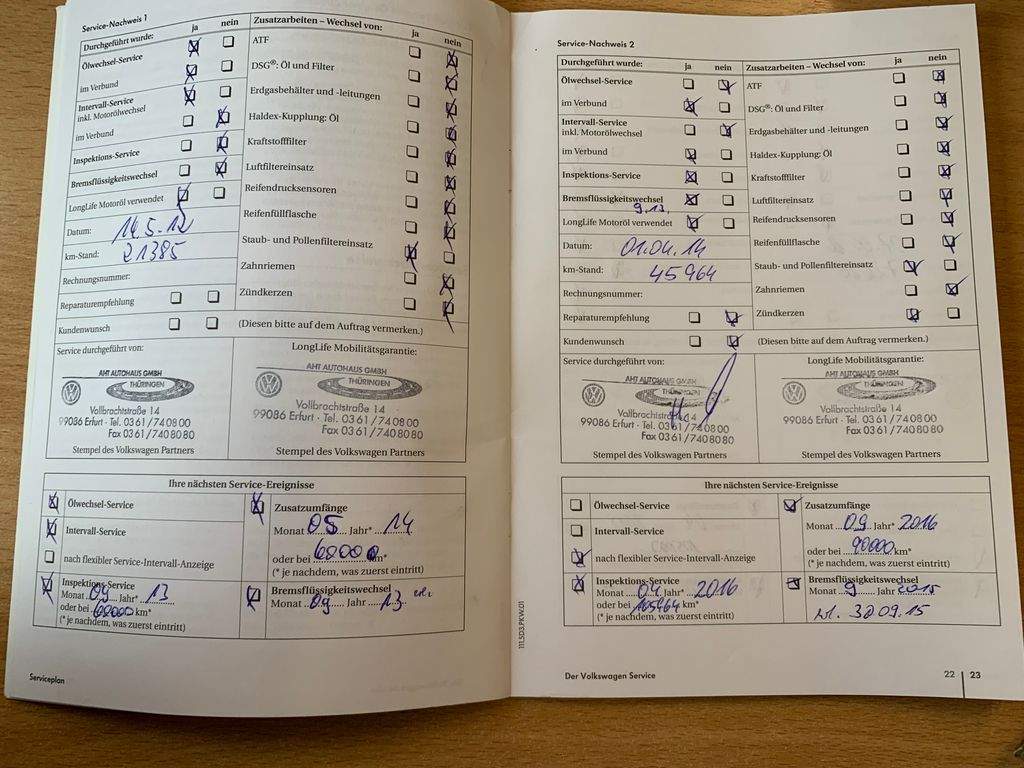 Service-Nachweis 1
Durchgeführt wurde: ja nein
Ölwechsel-Service
im Verbund
Intervall-Service
inkl. Motorölwechsel
im Verbund
Inspektions-Service
Bremsflüssigkeitswechsel
LongLife Motoröl verwendet
Datum: 14.5.12
km-Stand: 21385
Rechnungsnummer:
Reparaturempfehlung
Kundenwunsch
Zusatzarbeiten – Wechsel von: ja nein
ATF
DSG®: Öl und Filter
Erdgasbehälter und -leitungen
Haldex-Kupplung: Öl
Kraftstofffilter
Luftfiltereinsatz
Reifendrucksensoren
Reifenfüllflasche
Staub- und Pollenfiltereinsatz
Zahnriemen
Zündkerzen
(Diesen bitte auf dem Auftrag vermerken.)
Service durchgeführt von:
AHT AUTOHAUS GMBH
THÜRINGEN
Vollbrachtstraße 14
99086 Erfurt · Tel. 03 61 / 74 08 00
Fax 03 61 / 740 80 80
Stempel des Volkswagen Partners
LongLife Mobilitätsgarantie:
AHT AUTOHAUS GMBH
THÜRINGEN
Vollbrachtstraße 14
99086 Erfurt · Tel. 03 61 / 74 08 00
Fax 03 61 / 740 80 80
Stempel des Volkswagen Partners
Ihre nächsten Service-Ereignisse
Ölwechsel-Service
Intervall-Service
nach flexibler Service-Intervall-Anzeige
Zusatzumfänge
Monat 05 Jahr* 14
oder bei 60000 km*
(* je nachdem, was zuerst eintritt)
Inspektions-Service
Monat 09 Jahr* 13
oder bei 60000 km*
(* je nachdem, was zuerst eintritt)
Bremsflüssigkeitswechsel
Monat 09 Jahr 13
Serviceplan
Service-Nachweis 2
Durchgeführt wurde: ja nein
Ölwechsel-Service
im Verbund
Intervall-Service
inkl. Motorölwechsel
im Verbund
Inspektions-Service
Bremsflüssigkeitswechsel
9.13.
LongLife Motoröl verwendet
Datum: 01.04.14
km-Stand: 45964
Rechnungsnummer:
Reparaturempfehlung
Kundenwunsch
Zusatzarbeiten – Wechsel von: ja nein
ATF
DSG®: Öl und Filter
Erdgasbehälter und -leitungen
Haldex-Kupplung: Öl
Kraftstofffilter
Luftfiltereinsatz
Reifendrucksensoren
Reifenfüllflasche
Staub- und Pollenfiltereinsatz
Zahnriemen
Zündkerzen
(Diesen bitte auf dem Auftrag vermerken.)
Service durchgeführt von:
AHT AUTOHAUS GMBH
THÜRINGEN
Vollbrachtstraße 14
99086 Erfurt · Tel. 03 61 / 74 08 00
Fax 03 61 / 740 80 80
Stempel des Volkswagen Partners
LongLife Mobilitätsgarantie:
AHT AUTOHAUS GMBH
THÜRINGEN
Vollbrachtstraße 14
99086 Erfurt · Tel. 03 61 / 74 08 00
Fax 03 61 / 740 80 80
Stempel des Volkswagen Partners
Ihre nächsten Service-Ereignisse
Ölwechsel-Service
Intervall-Service
nach flexibler Service-Intervall-Anzeige
Zusatzumfänge
Monat 09 Jahr* 2016
oder bei 90000 km*
(* je nachdem, was zuerst eintritt)
Inspektions-Service
Monat 04 Jahr* 2016
oder bei 105964 km*
(* je nachdem, was zuerst eintritt)
Bremsflüssigkeitswechsel
Monat 9 Jahr 2015
09.15
111.5D3.PKW.01
Der Volkswagen Service
22 | 23